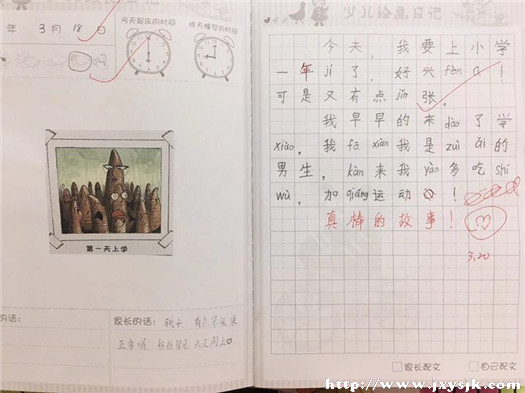 年 3月 18日
今天起床的时间
昨天睡觉的时间
第一天上学
的话：
家长的话：孩子
少儿绘画日记
今天，我要上小学
一年jí了，好兴fèn a！
可是又有点jǐn张。
我早早的来dào了学
xiào。我fā xiàn我是zuì ǎi的
男生。kàn来我yào多吃shí
wù，加qiáng运动！
真棒的故事！
3.20
家长配文
自己配文
http://www.jxysjk.com